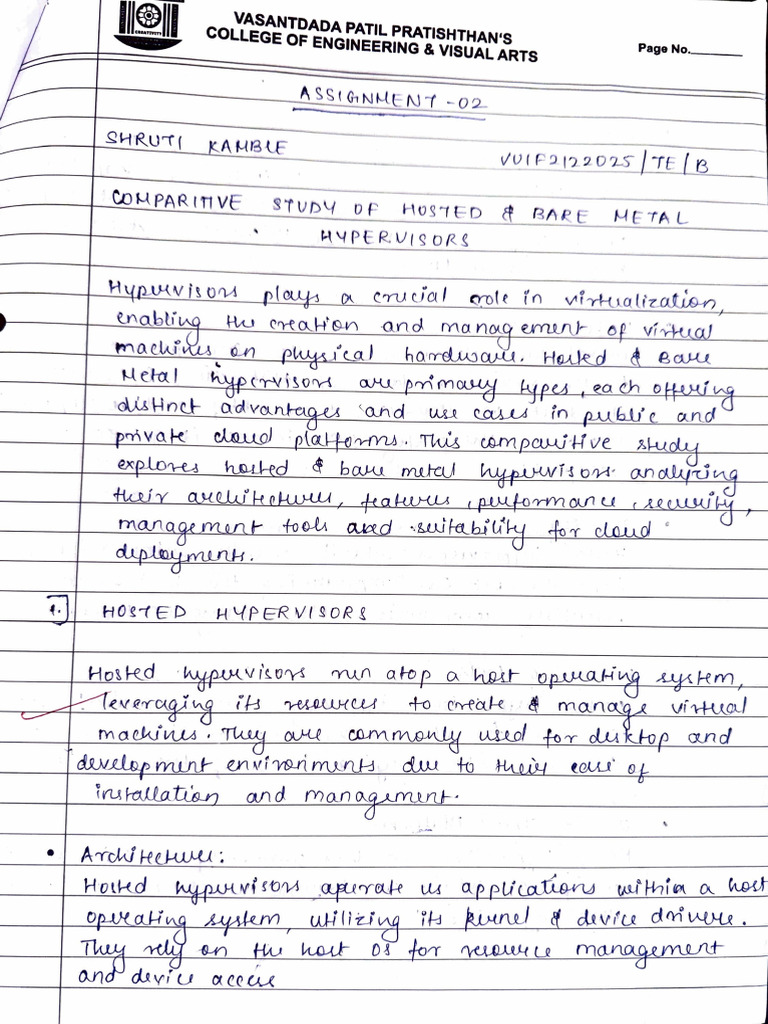 CREATIVITY
VASANTDADA PATIL PRATISHTHAN'S
COLLEGE OF ENGINEERING & VISUAL ARTS
Page No.
ASSIGNMENT - 02
SHRUTI KAMBLE
VU1F2122025/TE/B
COMPARITIVE STUDY OF HOSTED & BARE METAL
HYPERVISORS
Hypervisors plays a crucial role in virtualization,
enabling the creation and management of virtual
machines on physical hardware. Hosted & Bare
Metal hypervisors are primary types, each offering
distinct advantages and use cases in public and
private cloud platforms. This comparitive study
explores hosted & bare metal hypervisors analyzing
their architectures, features, performance, security,
management tools and suitability for cloud
deployments.
1. HOSTED HYPERVISORS
Hosted hypervisors run atop a host operating system,
leveraging its resources to create & manage virtual
machines. They are commonly used for desktop and
development environments due to their ease of
installation and management.
• Architecture:
Hosted hypervisors operate as applications within a host
operating system, utilizing its kernel & device drivers.
They rely on the host OS for resource management
and device access